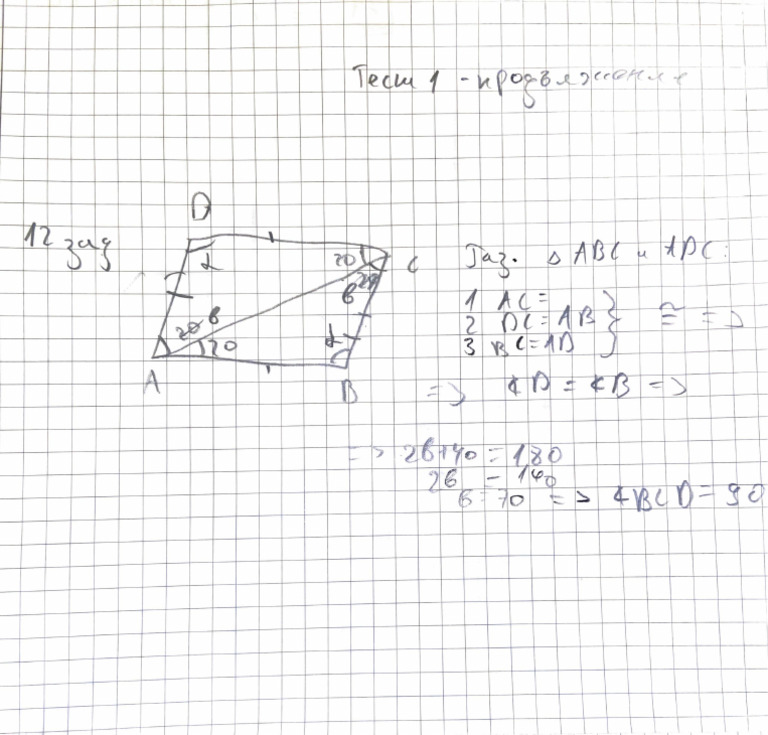 Тест 1 - продължение
12 зад
D
α
20
C
20
β
20 β
20
α
A
B
Раз. △ ABC и ADC:
1 AC =
2 DC = AB } ≅ =>
3 BC = AD
=> ∢D = ∢B =>
=> 2β+40 = 180
2β = 140
β = 70 => ∢BCD = 90